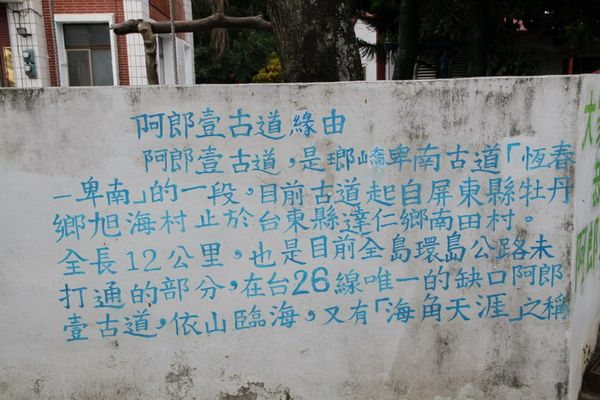 阿郎壹古道緣由
阿郎壹古道，是瑯嶠卑南古道「恆春
－卑南」的一段，目前古道起自屏東縣牡丹
鄉旭海村止於台東縣達仁鄉南田村。
全長12公里，也是目前全島環島公路未
打通的部分，在台26線唯一的缺口阿郎
壹古道，依山臨海，又有「海角天涯」之稱
阿郎